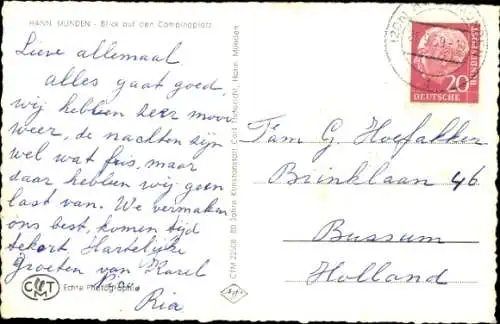 HANN. MÜNDEN - Blick auf den Campingplatz
Lieve allemaal
alles gaat goed,
wij hebben zeer mooi
weer, de nachten zijn
wel wat fris, maar
daar hebben wij geen
last van. We vermaken
ons best, komen tijd
tekort. Hartelijke
Groeten van Karel
Ria
CMT Echte Photographie
CTM 22508 80 Jahre Kunstanstalt Carl Hann. Münden
Agfa
DEUTSCHE
BUNDESPOST
20
Fam G. Hoefakker
Brinklaan 46
Bussum
Holland